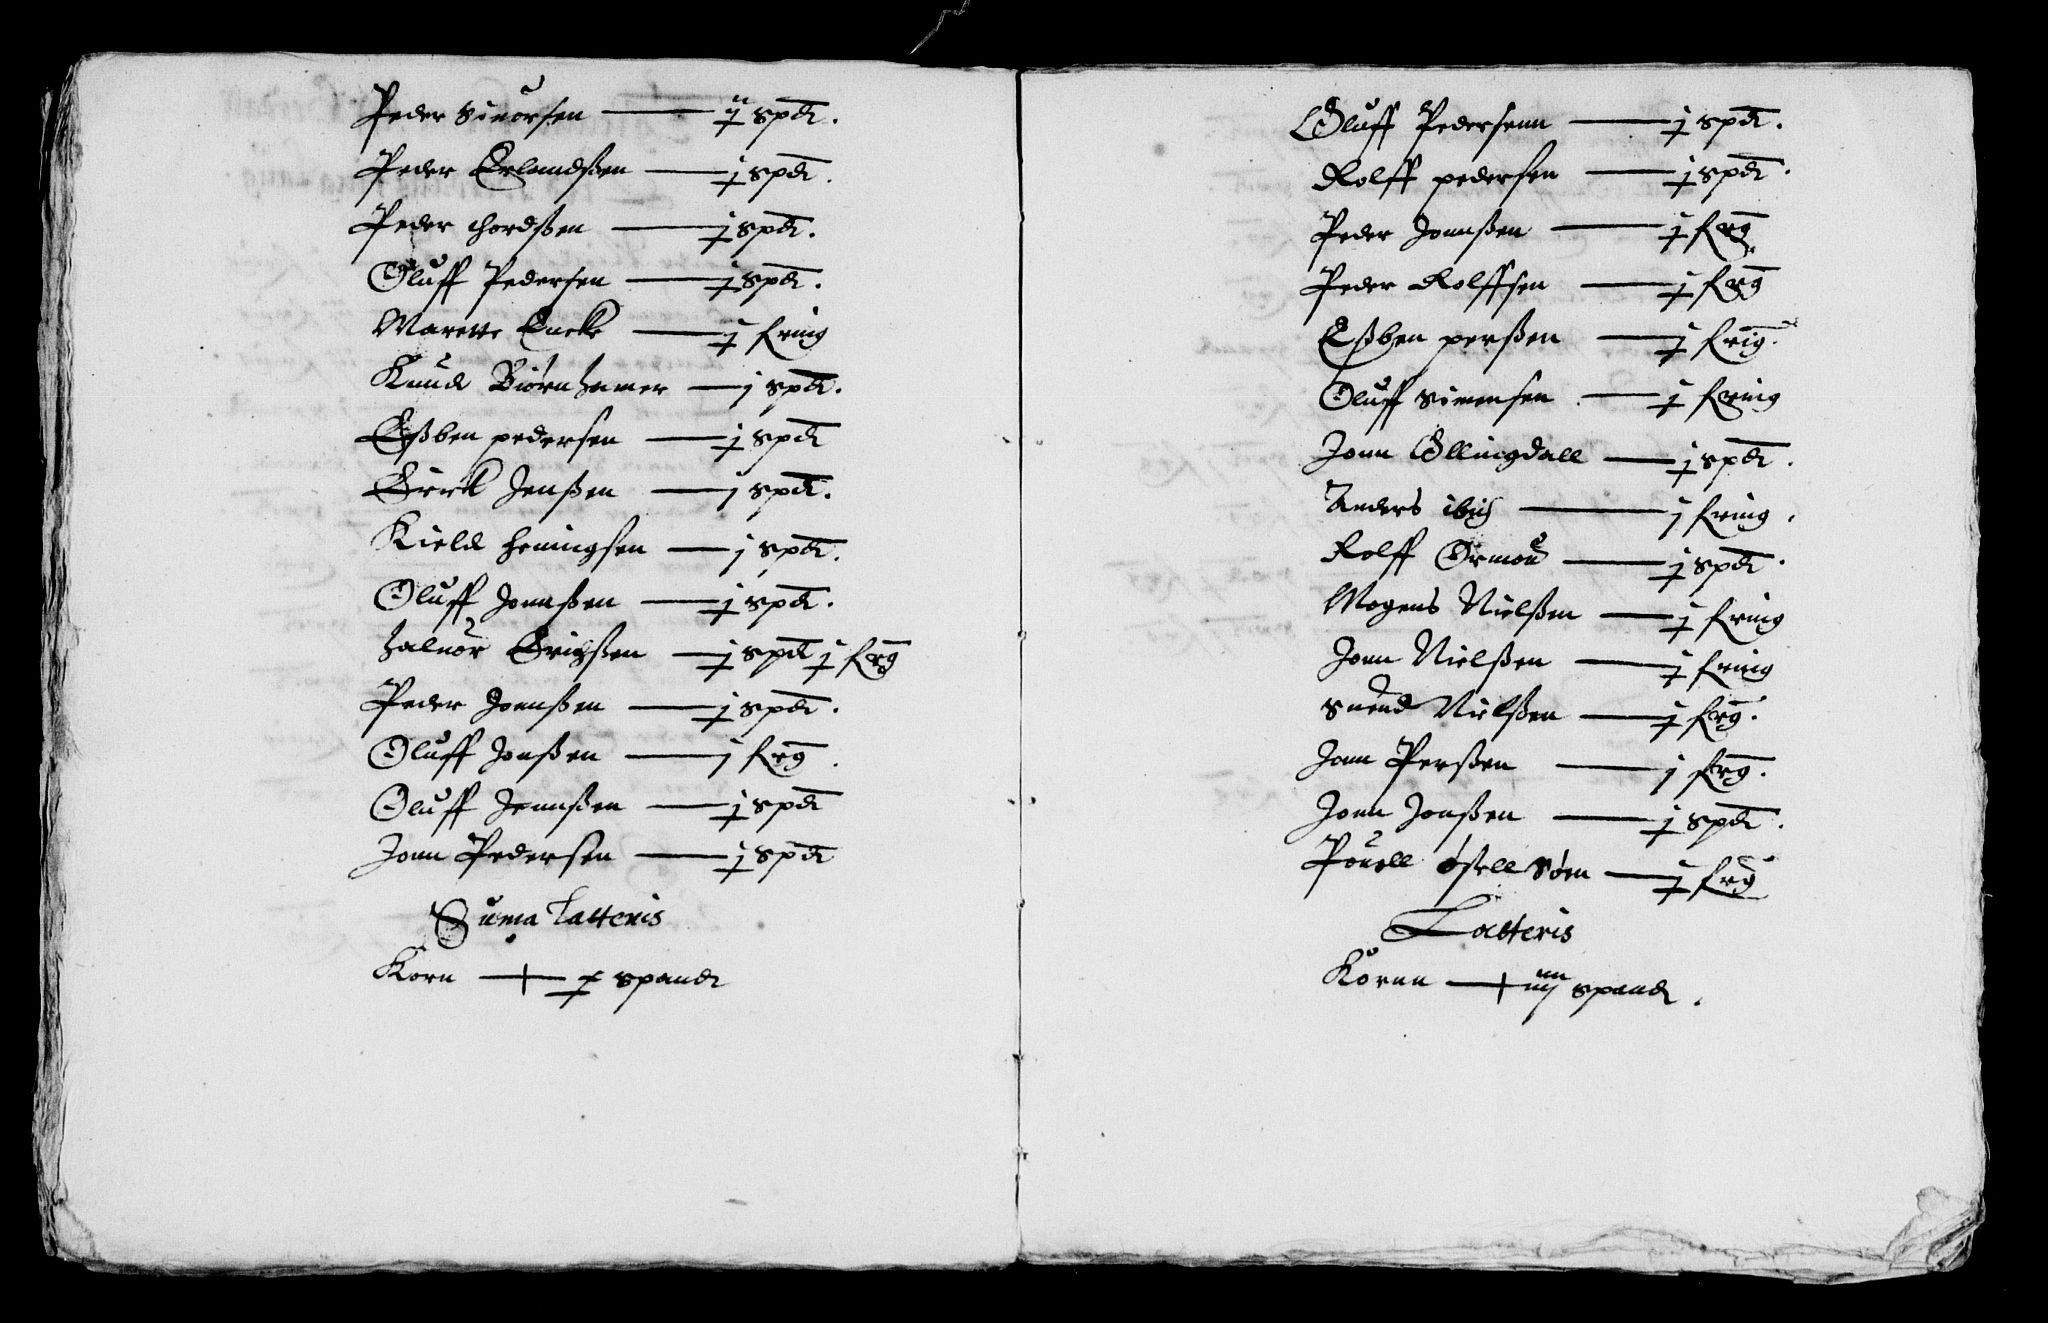 Peder Siuorsen — j spd.
Peder Erlandßen — j spd.
Peder thordßen — j spd.
Oluff Pedersen — j spd.
Marette Encke — j fring
Knud Biørnhamer — j spd.
Eßben pedersen — j spd
Erick Jenßen — j spd.
Kield heningsen — j spd.
Oluff Jonnßen — j spd.
Haluor Erichßen — j spd j frg
Peder Joenßen — j spd.
Oluff Jonßen — j frg.
Oluff Jennßen — j spd
Jonn Pedersen — j spd
Suma Latteris
Korn — spand
Oluff Pedersenn — j spd.
Rolff pedersen — j spd.
Peder Jonnßen — j frg
Peder Rolffsen — j frg
Eßben perßen — j frig.
Oluff Simensen — j fring
Jonn Ellingdall — j spd.
Anders — j fring.
Rolff Ormou — j spd.
Mogens Nielßen — j fring
Jonn Nielßen — j fring
Suend Nielßen — j frg.
Jonn Perßen — j frg.
Jonn Jonßen — j spd.
Pouell Søen — j frg
Latteris
Kornn — spand.